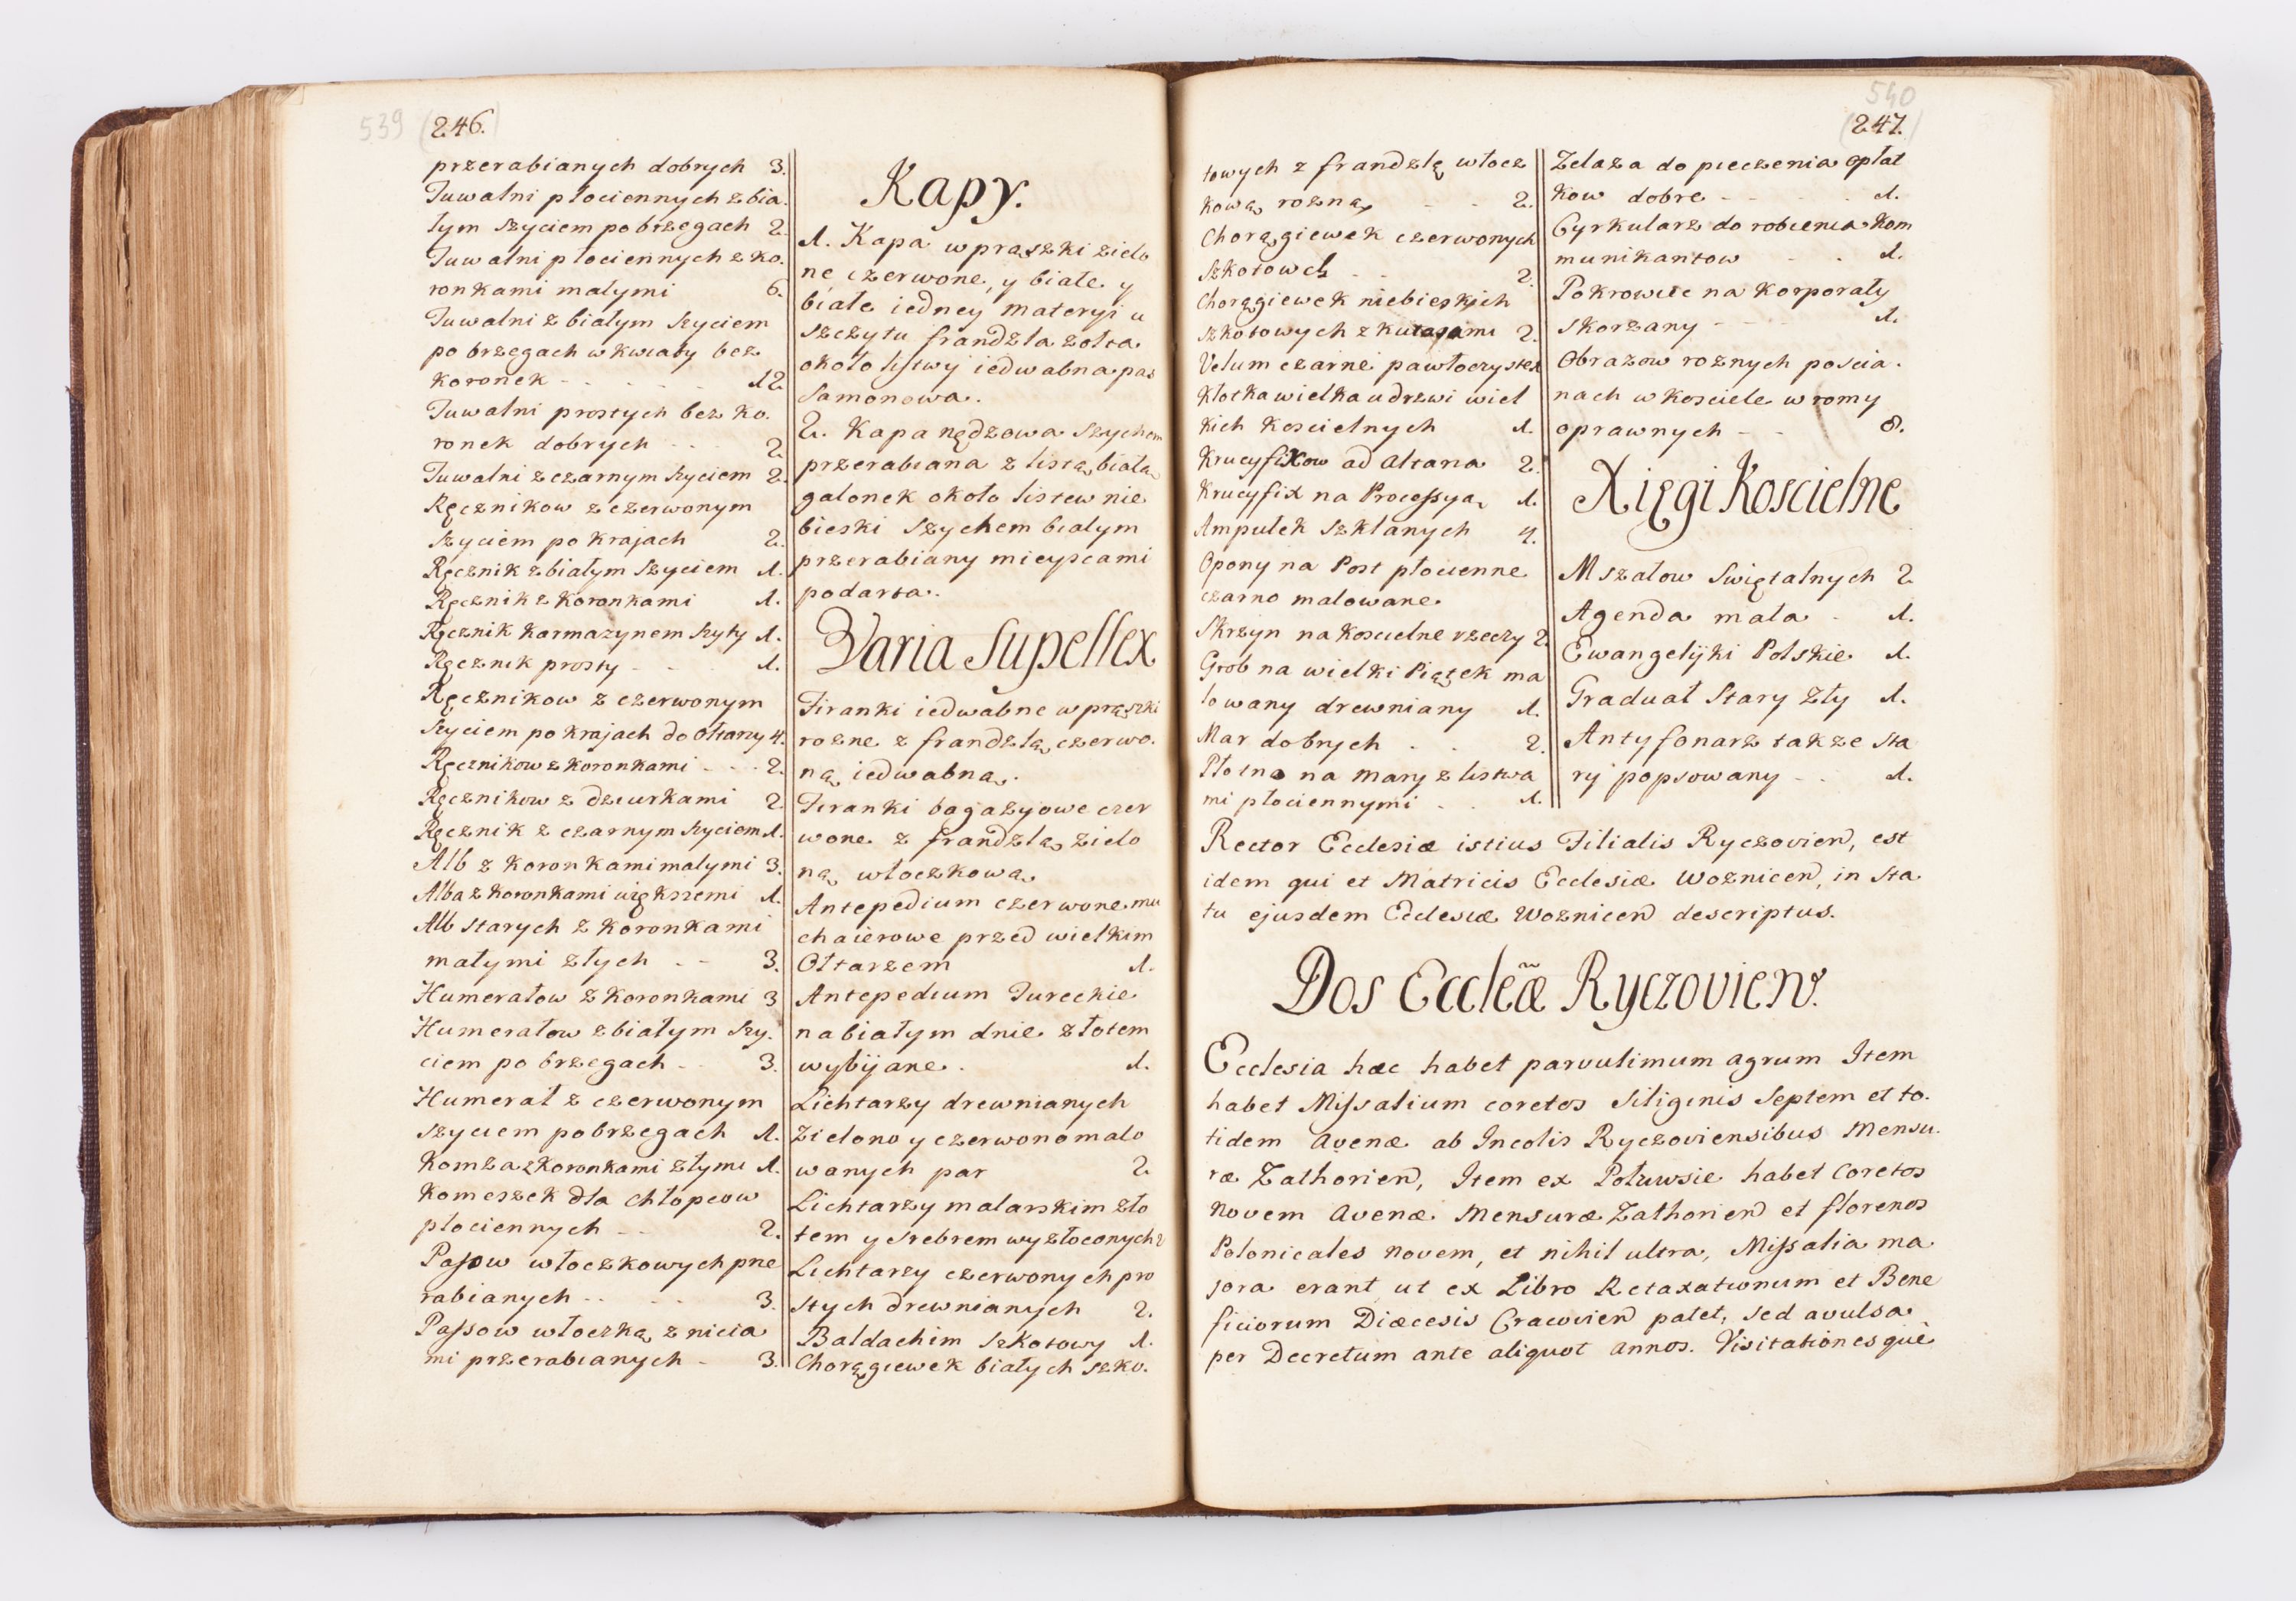 539 (246.)
przerabianych dobrych 3.
Tuwalni płociennych z bia.
łym szyciem po brzegach 2.
Tuwalni płociennych z ko.
ronkami małymi 6.
Tuwalni z białym szyciem
po brzegach w kwiaty bez
koronek - - - - 12
Tuwalni prostych bez ko.
ronek dobrych - - 2
Tuwalni z czarnym szyciem 2.
Ręcznikow z czerwonym
szyciem po krajach 2.
Ręcznik z białym szyciem 1.
Ręcznik z koronkami 1.
Ręcznik karmazynem szyty 1.
Ręcznik prosty - - 1.
Ręcznikow z czerwonym
szyciem po krajach do Ołtarzy 4.
Ręcznikow z koronkami - - - 2.
Ręcznikow z dziurkami 2
Ręcznik z czarnym szyciem 1.
Alb z koronkami małymi 3.
Alba z koronkami większemi 1.
Alb starych z koronkami
małymi złych - - 3.
Humerałow z koronkami 3
Humerałow z białym szy.
ciem po brzegach - - 3.
Humerał z czerwonym
szyciem po brzegach 1.
Komża z koronkami złymi 1.
Komeszek dla chłopcow
płociennych - - 2.
Passow włoczkowych prze
rabianych - - - - 3.
Passow włoczką z nicia
mi przerabianych - 3.
Kapy.
1. Kapa w prąszki zielo
ne czerwone, y białe y
białe iedney materyi u
szczytu frandzla żołta
około listwy iedwabna pas
samonowa.
2. Kapa nędzowa szychem
przerabiana z listą białą
galonek około listew nie
bieski szychem białym
przerabiany mieyscami
podarta.
Varia Supellex
Firanki iedwabne w prąszki
rozne z frandzlą czerwo.
ną iedwabną.
Firanki bagazyowe czer
wone z frandzlą zielo
ną włoczkową
Antepedium czerwone mu
chaierowe przed wielkim
Ołtarzem 1.
Antepedium Tureckie
na białym dnie złotem
wybijane. 1.
Lichtarzy drewnianych
zielono y czerwono malo
wanych par 2
Lichtarzy malarskim zło
tem y srebrem wyzłoconych 2
Lichtarzy czerwonych pro
stych drewnianych 2.
Baldachim szkotowy 1.
Chorągiewek białych szko.
540
(247.)
towych z frandzlą włocz
kową rozną - - 2.
Chorągiewek czerwonych
szkotowych - - 2
Chorągiewek niebieskich
szkotowych z kutasami 2.
Velum czarne pawłoczyste 1
Kłotka wielka u drzwi wiel
kich Koscielnych 1.
Krucyfixow ad altaria 2.
Krucyfix na Processyą 1.
Ampułek szklanych 4.
Opony na Post płocienne
czarno malowane.
Skrzyn na koscielne rzeczy 2.
Grob na wielki Piątek ma
lowany drewniany 1.
Mar dobrych - - 2.
Płotno na mary z listwa
mi płociennymi - - 1.
Zelaza do pieczenia opłat
kow dobre - - - - 1.
Cyrkularz do robienia kom
munikantow - - 1.
Pokrowiec na korporały
skorzany - - - 1.
Obrazow roznych po scia.
nach w kosciele w romy
oprawnych - - 8.
Xięgi Koscielne
Mszałow Swiętalnych 2
Agenda mała - 1.
Ewangelijki Polskie 1.
Graduał Stary zły 1.
Antyfonarz takze sta
ry popsowany - - 1.
Rector Ecclesiæ istius Filialis Ryczovien, est
idem qui et Matricis Ecclesiæ Woznicen, in sta
tu ejusdem Ecclesiæ Woznicen descriptus.
Dos Eccleæ Ryczovien.
Ecclesia hæc habet parvulimum agrum Item
habet Missalium coretos siliginis septem et to.
tidem avenæ ab Incolis Ryczoviensibus mensu.
ræ Zathorien, Item ex Połwsie habet coretos
novem avenæ mensuræ Zathorien et florenos
Polonicales novem, et nihil ultra, Missalia ma
jora erant ut ex Libro Retaxationum et Bene
ficiorum Diæcesis Cracovien patet, sed avulsa
per Decretum ante aliquot annos. Visitationesque